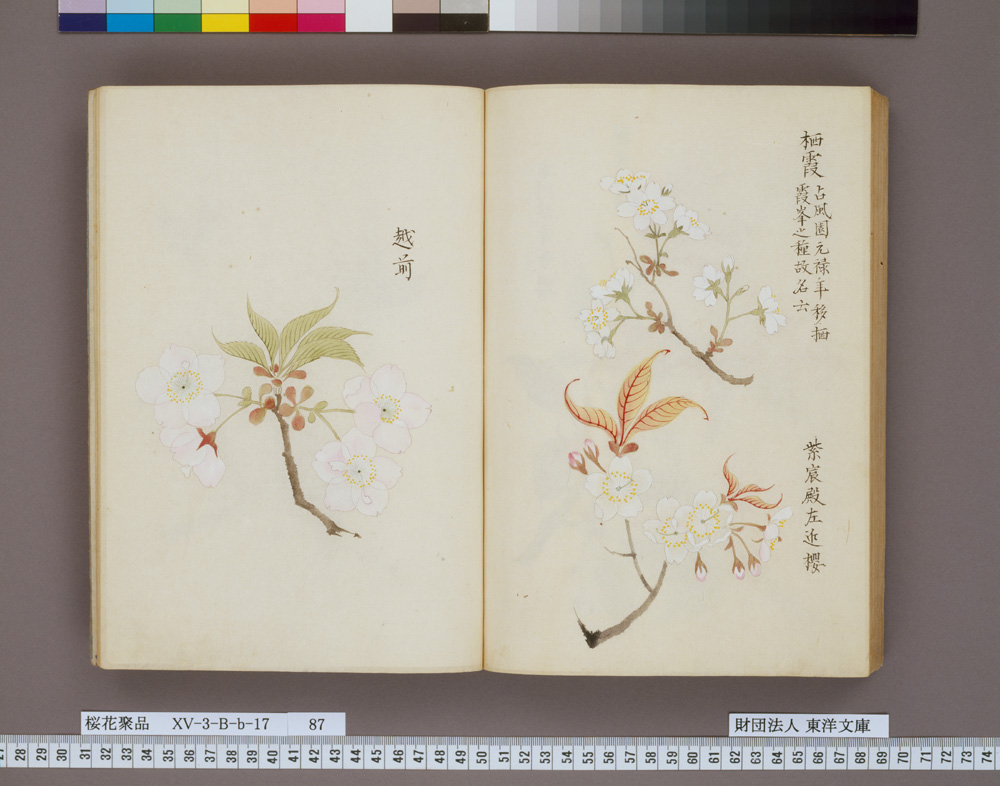 栖霞
古風園元禄年移栖
霞峯之種故名六
紫宸殿左近櫻
越前
桜花聚品 XV-3-B-b-17 87
財団法人 東洋文庫
27 28 29 30 31 32 33 34 35 36 37 38 39 40 41 42 43 44 45 46 47 48 49 50 51 52 53 54 55 56 57 58 59 60 61 62 63 64 65 66 67 68 69 70 71 72 73 74